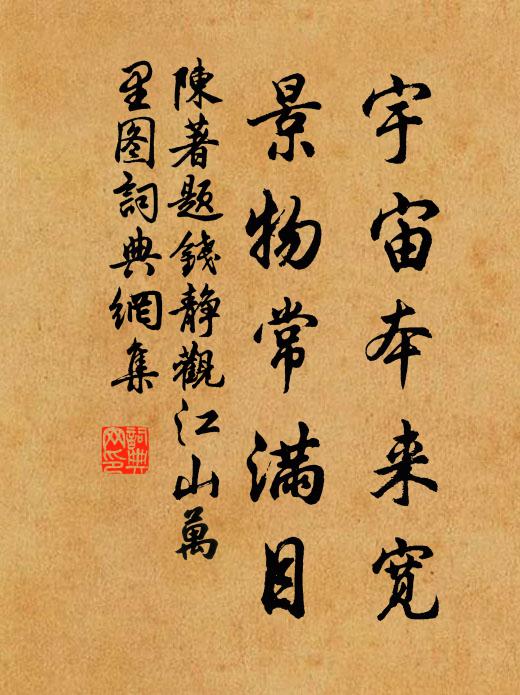 宇宙本来宽
景物常满目
陳著题錢静觀江山萬
里图詞典網集
詞典网印